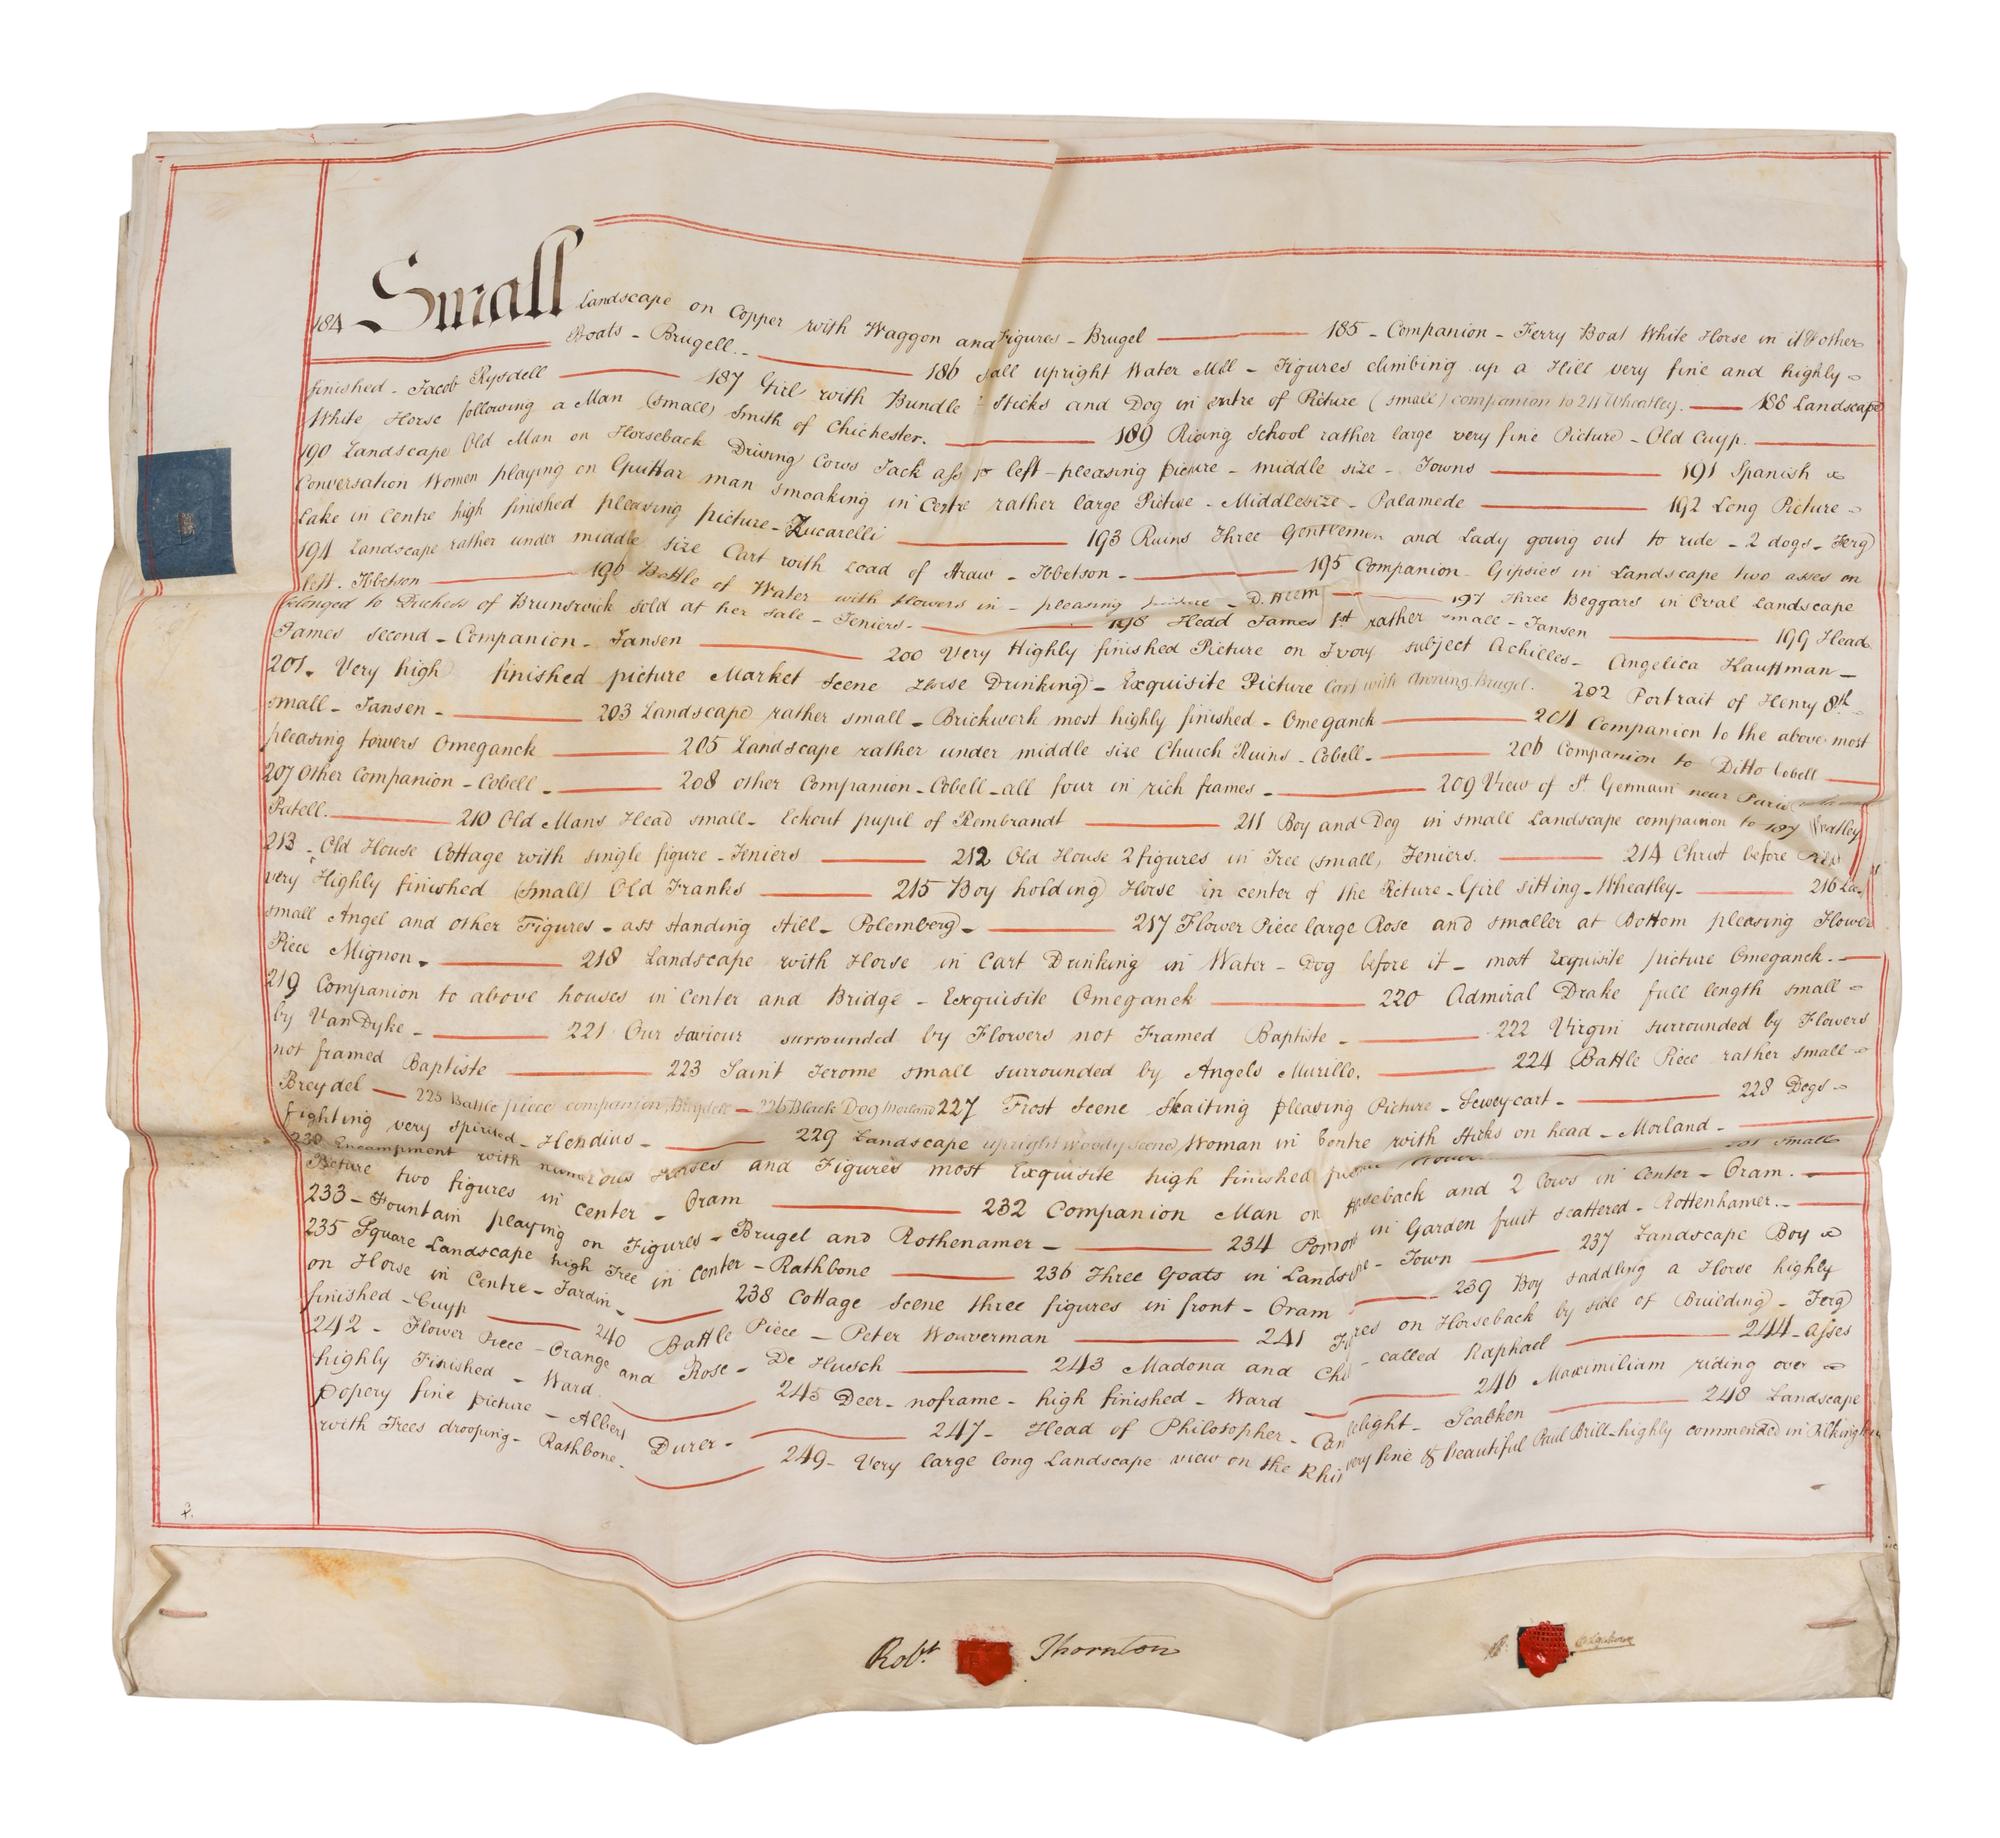 184 Small Landscape on Copper with Waggon and Figures - Brugel 185 - Companion - Ferry Boat White Horse in it & other
Boats - Brugell. - 186 Tall upright Water Mill - Figures climbing up a Hill very fine and highly
finished - Jacob Rysdell 187 Girl with Bundle Sticks and Dog in centre of Picture (small) companion to 211 Wheatley. 188 Landscape
White Horse following a Man (small) Smith of Chichester. 189 Riding School rather large very fine Picture - Old Cuyp.
190 Landscape Old Man on Horseback Driving Cows Jack ass to left - pleasing picture - middle size - Towns 191 Spanish
Conversation Women playing on Guittar man smoaking in Centre rather large Picture - Middlesize - Palamede 192 Long Picture -
Lake in Centre high finished pleasing picture - Zucarelli 193 Ruins Three Gentlemen and Lady going out to ride - 2 dogs - Ferg
194 Landscape rather under middle size Cart with Load of Straw - Ibbetson - 195 Companion - Gipsies in Landscape two asses on
left. Ibbetson 196 Bottle of Water with flowers in - pleasing picture - D. Heem 197 Three Beggars in Oval Landscape
belonged to Duchess of Brunswick sold at her sale - Teniers - 198 Head James 1st rather small - Jansen 199 Head
James second - Companion - Jansen 200 Very Highly finished Picture on Ivory subject Achilles - Angelica Kauffman -
201. Very high finished picture Market Scene Horse Drinking - Exquisite Picture Cart with Awning. Brugel. 202 Portrait of Henry 8th -
small - Jansen - 203 Landscape rather small - Brickwork most highly finished - Omeganck 204 Companion to the above most
pleasing towers Omeganck 205 Landscape rather under middle size Church Ruins - Cobell - 206 Companion to Ditto Cobell
207 Other Companion - Cobell - 208 other Companion - Cobell - all four in rich frames - 209 View of St. Germain near Paris
Patell. 210 Old Mans Head small - Eckout pupil of Rembrandt 211 Boy and Dog in small Landscape companion to 187 Wheatley
213 - Old House Cottage with single figure - Teniers 212 Old House 2 figures in Tree (small) Teniers. 214 Christ before
very Highly finished (small) Old Franks 215 Boy holding Horse in center of the Picture - Girl sitting - Wheatley - 216
small Angel and other Figures - ass standing still - Polemberg - 217 Flower Piece large Rose and smaller at Bottom pleasing Flower
Piece Mignon. 218 Landscape with Horse in Cart Drinking in Water - Dog before it - most Exquisite picture Omeganck. -
219 Companion to above houses in Center and Bridge - Exquisite Omeganck 220 Admiral Drake full length small -
by VanDyke - 221 Our Saviour surrounded by Flowers not Framed Baptiste - 222 Virgin surrounded by Flowers
not framed Baptiste 223 Saint Jerome small surrounded by Angels Murillo. 224 Battle Piece rather small -
Breydel - 225 Battle piece companion, Breydell - 226 Black Dog Morland 227 Frost Scene Skaiting pleasing Picture - Seweycart - 228 Dogs -
fighting very spirited - Hondius - 229 Landscape upright woody scene, Woman in Centre with Sticks on head - Morland -
230 Encampment with numerous Horses and Figures most Exquisite high finished 231 Small
Picture two figures in center - Oram 232 Companion Man on Horseback and 2 Cows in Center - Oram. -
233 - Fountain playing on Figures - Brugel and Rothenamer - 234 in Garden fruit scattered - Rottenhamer. -
235 Square Landscape high Tree in Center - Rathbone 236 Three Goats in Landscape - Town 237 Landscape Boy
on Horse in Centre - Jardin - 238 Cottage Scene three figures in front - Oram 239 Boy saddling a Horse highly
finished - Cuyp 240 Battle Piece - Peter Wouverman 241 Figures on Horseback by side of Bruilding - Ferg
242 - Flower Piece - Orange and Rose - De Huesch 243 Madona and - called Raphael 244 - Asses
highly Finished - Ward. 245 Deer - noframe - high finished - Ward 246 Maximiliam riding over
popery fine picture - Albert Durer - 247 - Head of Philosopher - Candlelight - Scalken 248 Landscape
with Trees drooping - Rathbone - 249 - Very large long Landscape view on the very fine & beautiful Paul Brill - highly commended in Pilkington
Robt Thornton